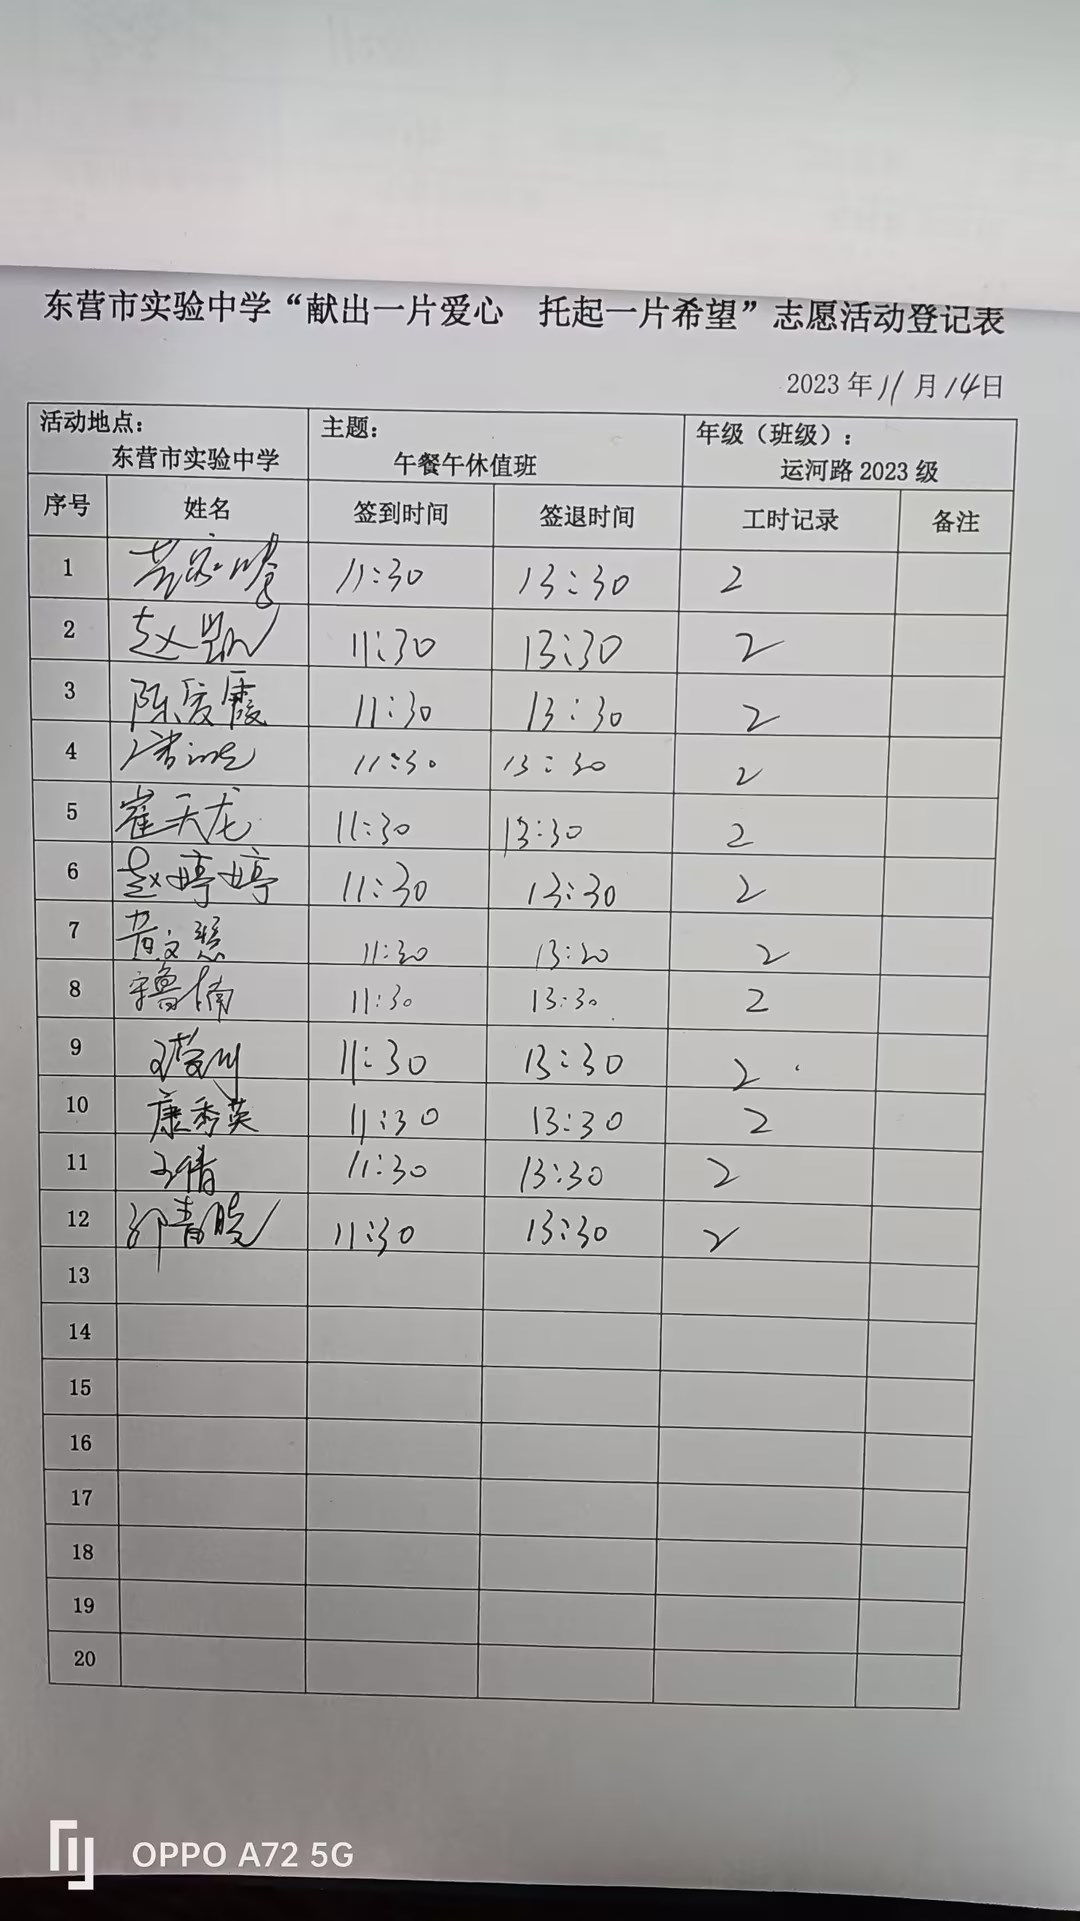 东营市实验中学“献出一片爱心 托起一片希望”志愿活动登记表
2023年11月14日
活动地点： 主题： 年级（班级）：
东营市实验中学 午餐午休值班 运河路2023级
序号 姓名 签到时间 签退时间 工时记录 备注
1 11:30 13:30 2
2 赵 11:30 13:30 2
3 陈爱霞 11:30 13:30 2
4 11:30 13:30 2
5 崔天龙 11:30 13:30 2
6 赵婷婷 11:30 13:30 2
7 黄文慧 11:30 13:30 2
8 11:30 13:30 2
9 11:30 13:30 2
10 康秀英 11:30 13:30 2
11 王倩 11:30 13:30 2
12 11:30 13:30 2
13
14
15
16
17
18
19
20
OPPO A72 5G